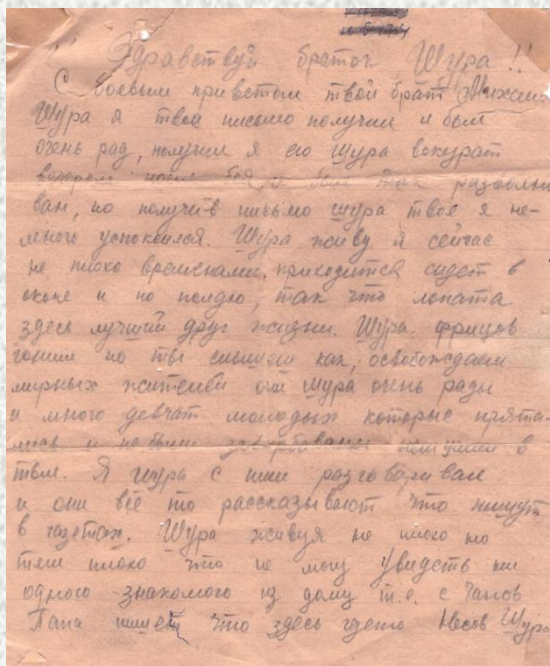 !! Здравствуй браток Шура!!
С боевым приветом твой брат
Шура я твоя письмо получил и был
очень рад, получил я его Шура вокурат
вечером после боя, я был так
ван, но получив письмо Шура твоё я не-
много успокоился. Шура живу я сейчас
не плохо временами, приходится сидеть в
окопе и по полдю, так что лопата
здесь лучший друг жизни. Шура фрицов
гоним но ты слышеш как, освобождаем
мирных жителей они Шура очень рады
и много девчат молодых которые прята-
лись и не были
тыл. Я Шура с ними разговаривал
и они всё то рассказывают что пишут
в газетах. Шура живуя не плохо но
тем плохо что не могу увидеть ни
одного знакомого из дому т.е. с
Папа пишет что здесь гдето Носов Шура